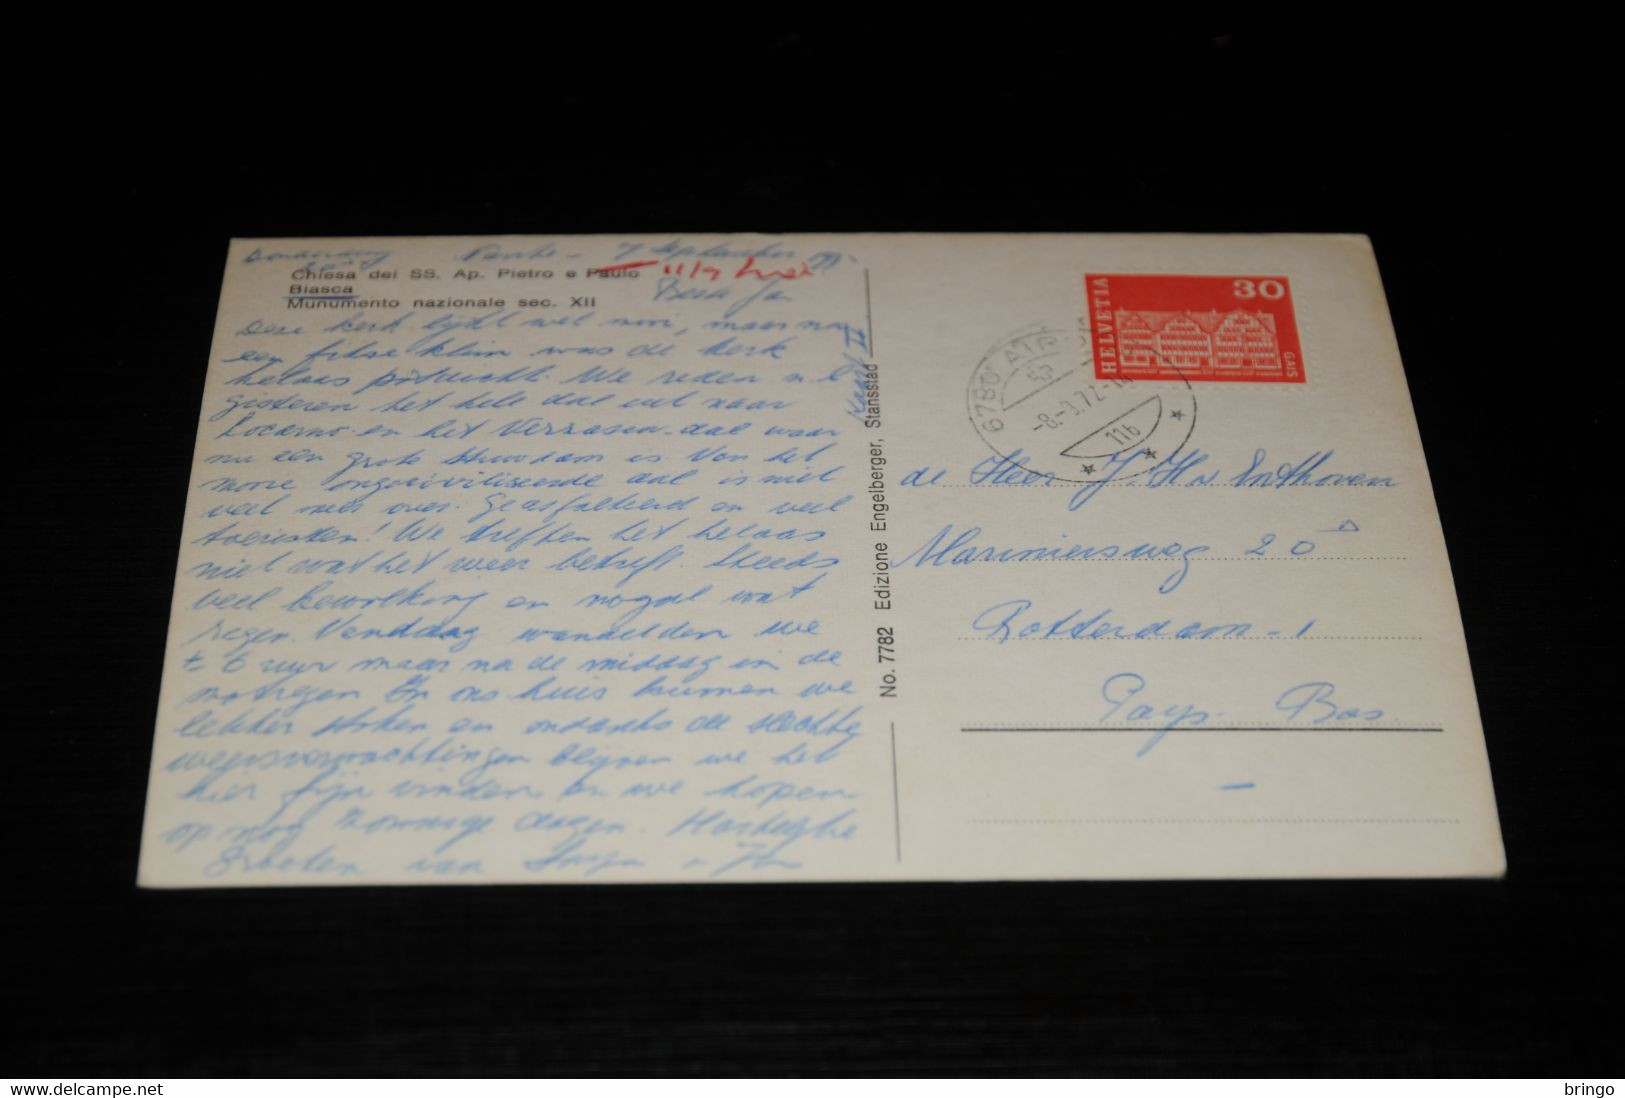 Donderdag 7 September
Chiesa dei SS. Ap. Pietro e Paulo
Biasca
Munumento nazionale sec. XII
11/9
Kaart II
Deze kerk lijkt wel mooi, maar na
een fikse klim was de kerk
helaas potdicht. We reden n.l.
gisteren het hele dal uit naar
Locarno en het Verzasca-dal waar
nu een grote stuwdam is. Van het
mooie ongeciviliseerde dal is niet
veel meer over. Geasfalteerd en veel
toeristen! We treffen het helaas
niet wat het weer betreft. Steeds
veel bewolking en nogal wat
regen. Vandaag wandelden we
± 6 uur maar na de middag in de
motregen. In ons huis kunnen we
lekker stoken en ondanks de slechte
weersverwachtingen blijven we het
hier fijn vinden en we hopen
op nog zonnige dagen. Hartelijke
Groeten van
No. 7782 Edizione Engelberger, Stansstad
HELVETIA
30
GAIS
6780 AIR
-8.-9.72
11b
de Heer J. H. v Enthoven
Mariniersweg 20
Rotterdam - 1
Pays Bas
delcampe.net
bringo